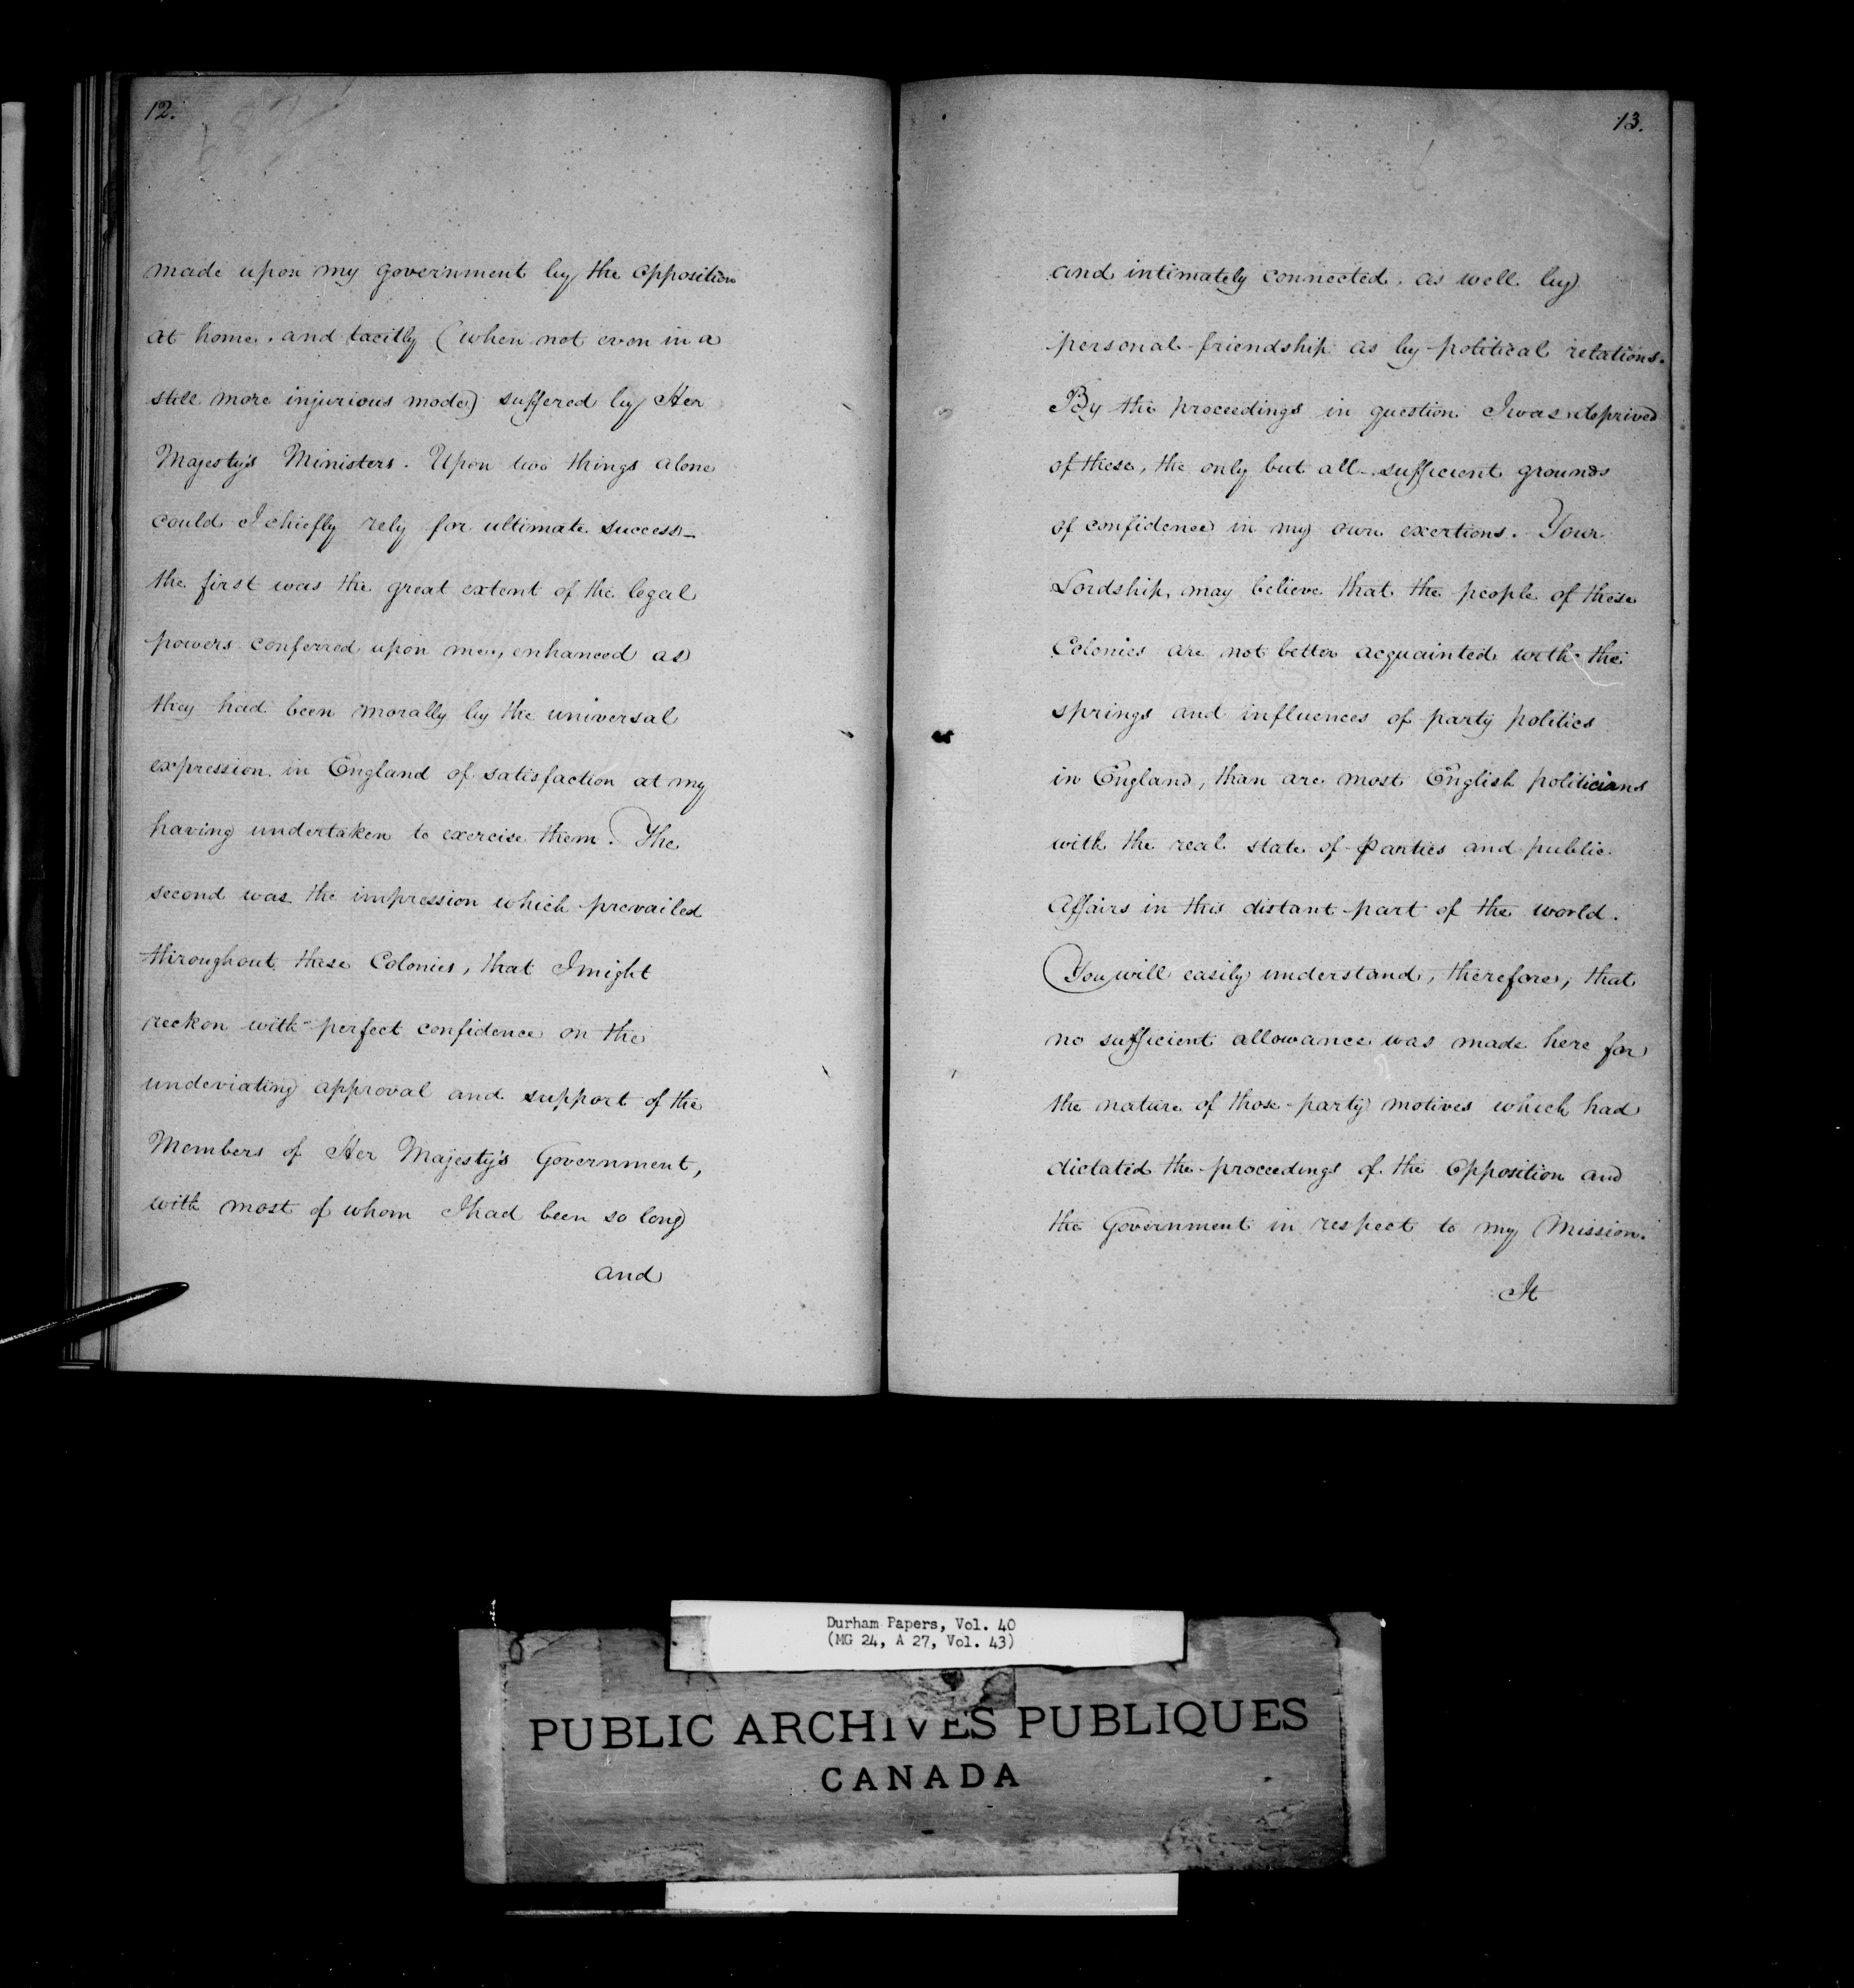 12.
made upon my government by the opposition
at home, and tacitly (when not even in a
still more injurious mode) suffered by Her
Majesty's Ministers. Upon two things alone
could I chiefly rely for ultimate success_
the first was the great extent of the legal
powers conferred upon me, enhanced as
they had been morally by the universal
expression in England of satisfaction at my
having undertaken to exercise them. The
second was the impression which prevailed
throughout these Colonies, that I might
reckon with perfect confidence on the
undeviating approval and support of the
Members of Her Majesty's Government,
with most of whom I had been so long
and
13.
and intimately connected, as well by
personal friendship as by political relations.
By the proceedings in question I was deprived
of these, the only but all-sufficient grounds
of confidence in my own exertions. Your
Lordship may believe that the people of these
Colonies are not better acquainted with the
springs and influences of party politics
in England, than are most English politicians
with the real state of Parties and public
Affairs in this distant part of the world.
You will easily understand, therefore, that
no sufficient allowance was made here for
the nature of those party motives which had
dictated the proceedings of the Opposition and
the Government in respect to my Mission.
It
Durham Papers, Vol. 40
(MG 24, A 27, Vol. 43)
PUBLIC ARCHIVES PUBLIQUES
CANADA